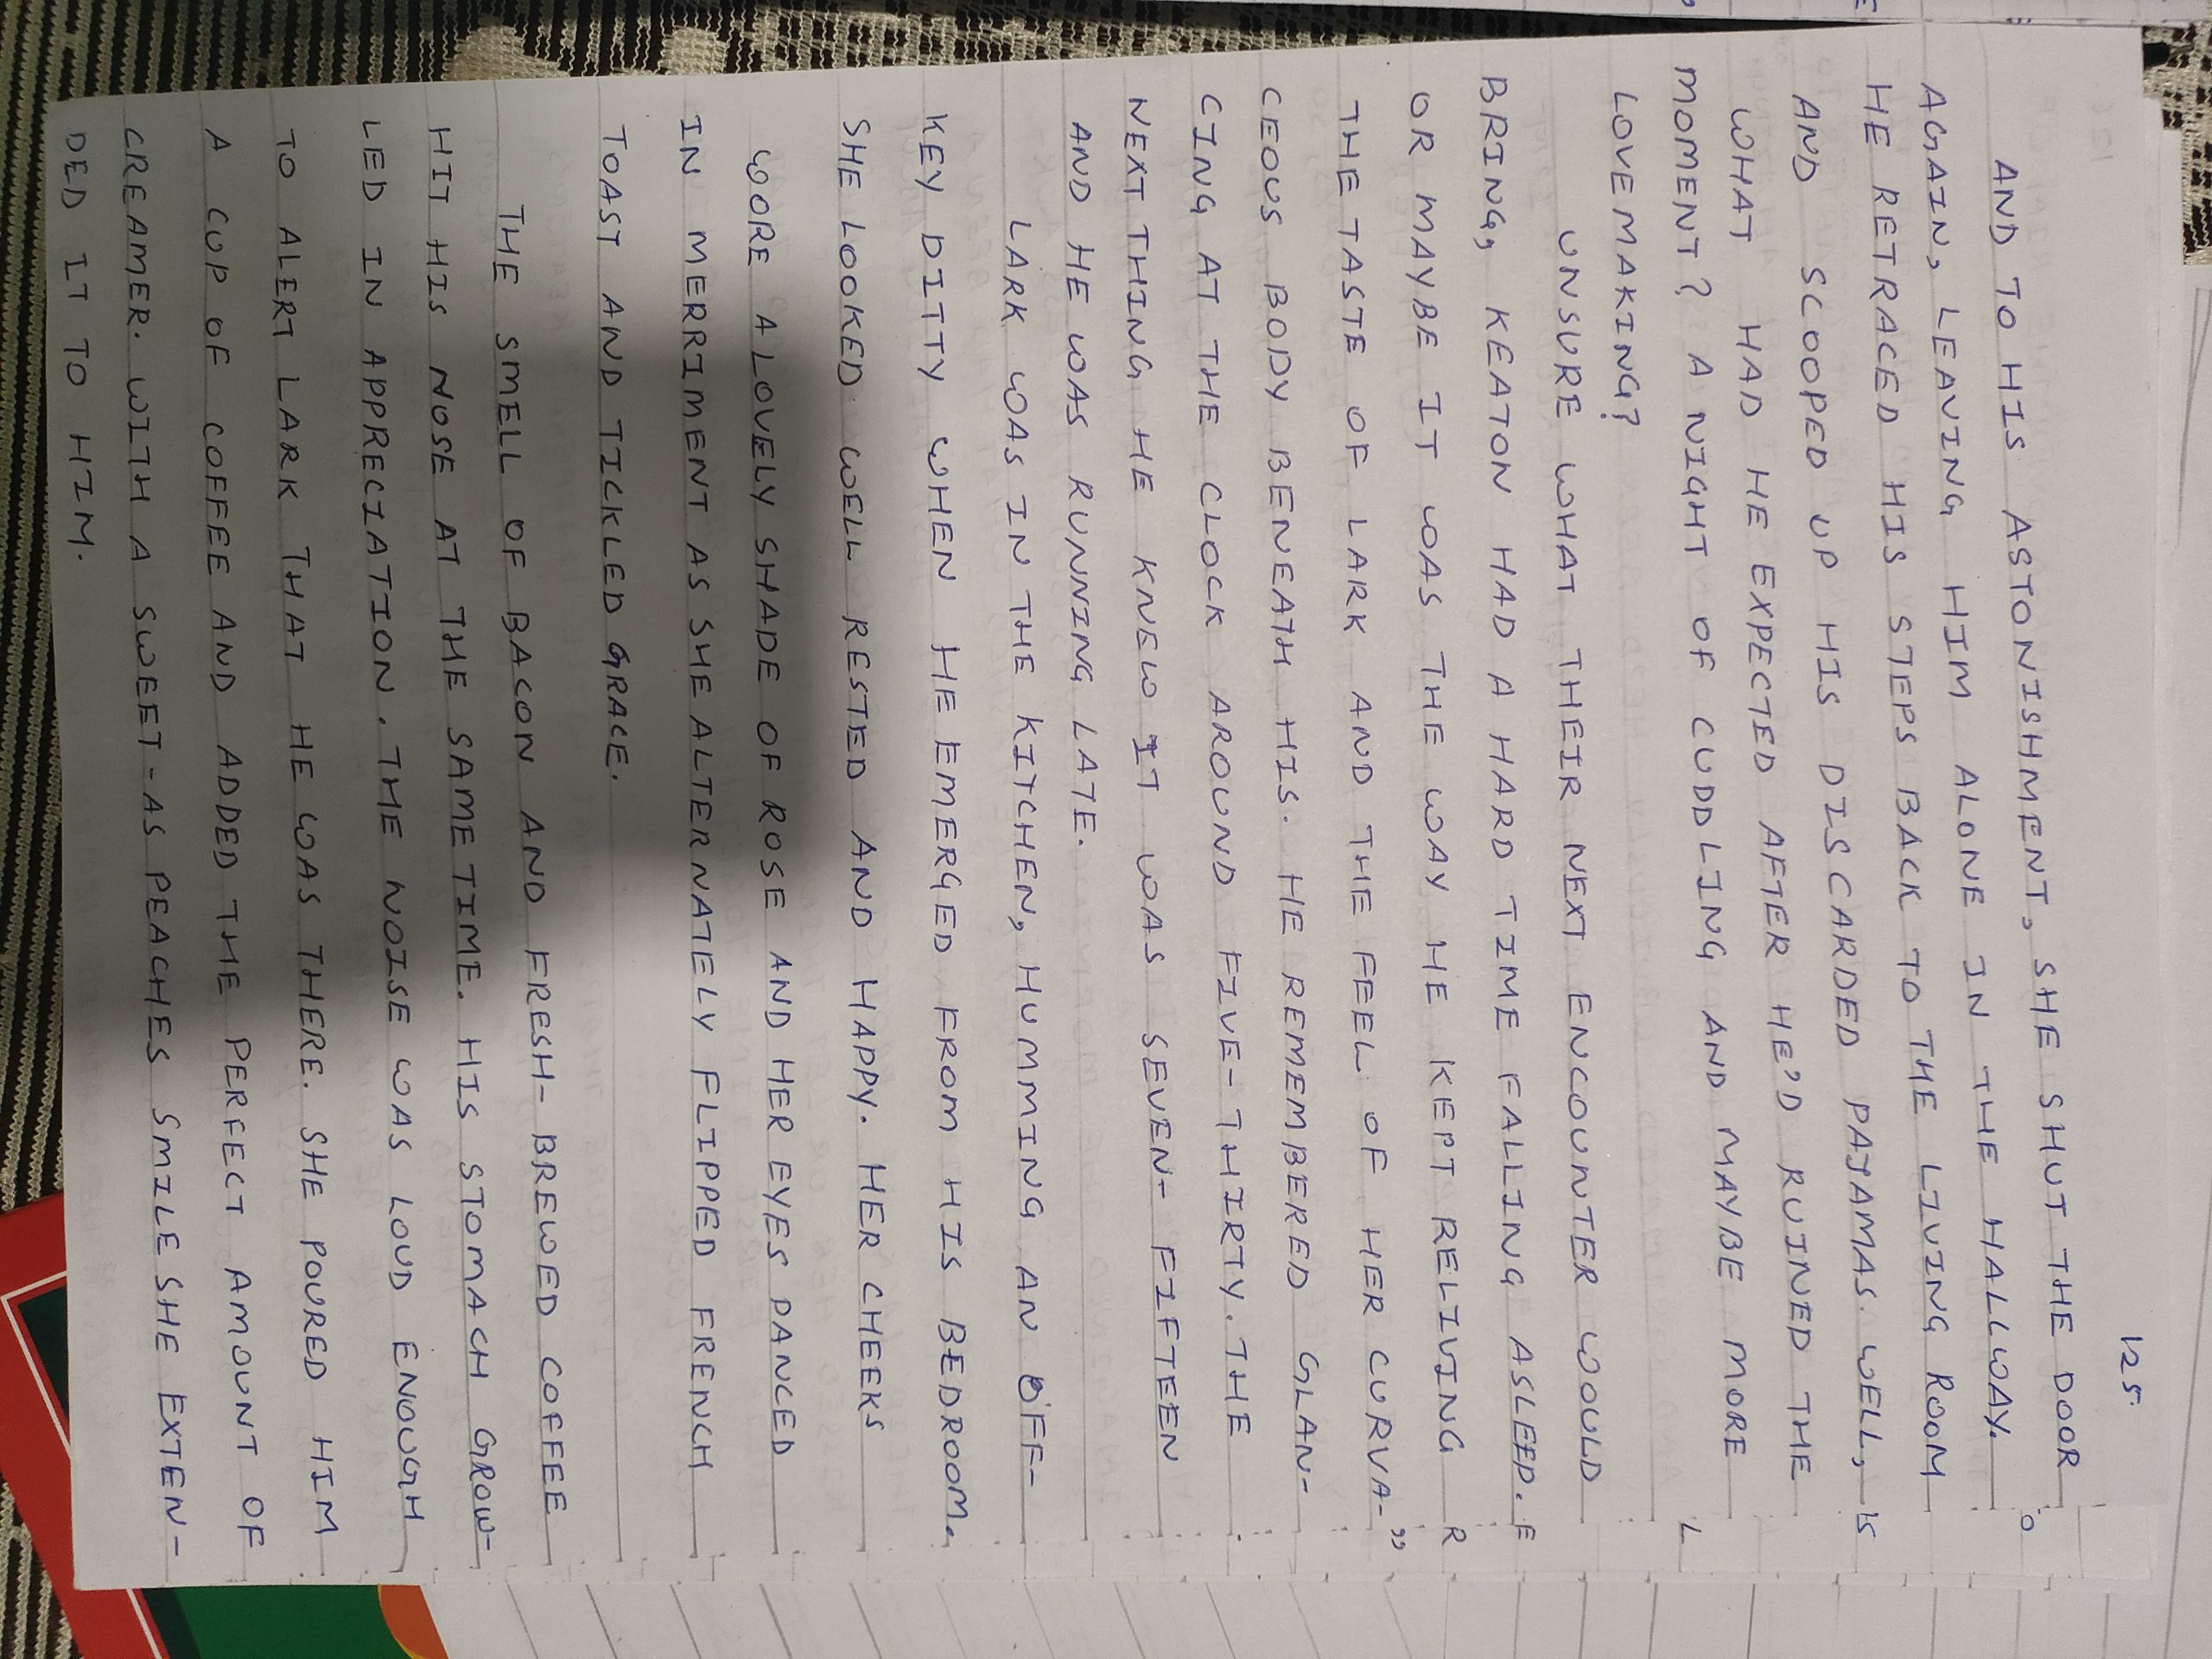 125.
AND TO HIS ASTONISHMENT, SHE SHUT THE DOOR
AGAIN, LEAVING HIM ALONE IN THE HALLWAY.
HE RETRACED HIS STEPS BACK TO THE LIVING ROOM
AND SCOOPED UP HIS DISCARDED PAJAMAS. WELL,
WHAT HAD HE EXPECTED AFTER HE'D RUINED THE
MOMENT? A NIGHT OF CUDDLING AND MAYBE MORE
LOVEMAKING?
UNSURE WHAT THEIR NEXT ENCOUNTER WOULD
BRING, KEATON HAD A HARD TIME FALLING ASLEEP.
OR MAYBE IT WAS THE WAY HE KEPT RELIVING
THE TASTE OF LARK AND THE FEEL OF HER CURVA-
CEOUS BODY BENEATH HIS. HE REMEMBERED GLAN-
CING AT THE CLOCK AROUND FIVE-THIRTY. THE
NEXT THING HE KNEW IT WAS SEVEN-FIFTEEN
AND HE WAS RUNNING LATE.
LARK WAS IN THE KITCHEN, HUMMING AN OFF-
KEY DITTY WHEN HE EMERGED FROM HIS BEDROOM.
SHE LOOKED WELL RESTED AND HAPPY. HER CHEEKS
WORE A LOVELY SHADE OF ROSE AND HER EYES DANCED
IN MERRIMENT AS SHE ALTERNATELY FLIPPED FRENCH
TOAST AND TICKLED GRACE.
THE SMELL OF BACON AND FRESH-BREWED COFFEE
HIT HIS NOSE AT THE SAME TIME. HIS STOMACH GROW-
LED IN APPRECIATION. THE NOISE WAS LOUD ENOUGH
TO ALERT LARK THAT HE WAS THERE. SHE POURED HIM
A CUP OF COFFEE AND ADDED THE PERFECT AMOUNT OF
CREAMER. WITH A SWEET-AS PEACHES SMILE SHE EXTEN-
DED IT TO HIM.